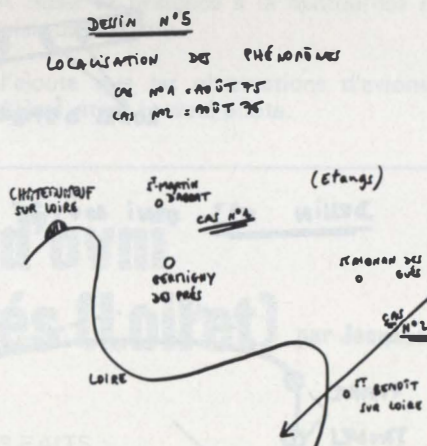 DESSIN N°5
LOCALISATION DES PHÉNOMÈNES
CAS N°1 = AOÛT 75
CAS N°2 = AOÛT 76
CHÂTEAUNEUF
SUR LOIRE
ST-MARTIN
D'ABBAT
CAS N°1
(Etangs)
GERMIGNY
DES PRÉS
ST AIGNAN DES
GUÉS
CAS
N°2
LOIRE
ST BENOÎT
SUR LOIRE